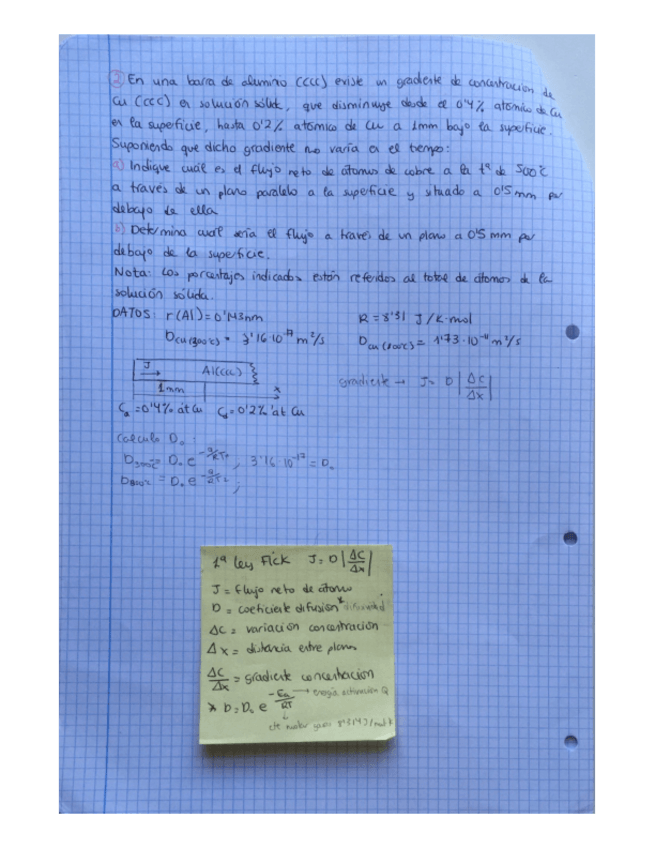 ② En una barra de aluminio (CCC) existe un gradiente de concentración de
Cu (CCC) en solución sólida, que disminuye desde el 0'4% atómico de Cu
en la superficie, hasta 0'2% atómico de Cu a 1mm bajo la superficie.
Suponiendo que dicho gradiente no varía en el tiempo:
a) Indique cuál es el flujo neto de átomos de cobre a la tª de 500ºC
a través de un plano paralelo a la superficie y situado a 0'5 mm por
debajo de ella
b) Determina cuál sería el flujo a través de un plano a 0'5 mm por
debajo de la superficie.
Nota: Los porcentajes indicados están referidos al total de átomos de la
solución sólida.
DATOS: r(Al)=0'143nm R=8'31 J/K·mol
Al(CCC)
J
1mm x
=0'4% at Cu =0'2% at Cu
gradiente → J= D |ΔC/Δx|
Calculo D₀:
1ª Ley Fick J= D |ΔC/Δx|
J = flujo neto de átomos
D = coeficiente difusión* difusividad
ΔC = variación concentración
Δx = distancia entre planos
ΔC/Δx = gradiente concentración
* D=D₀ e^(-Ea/RT) → energía activación Q